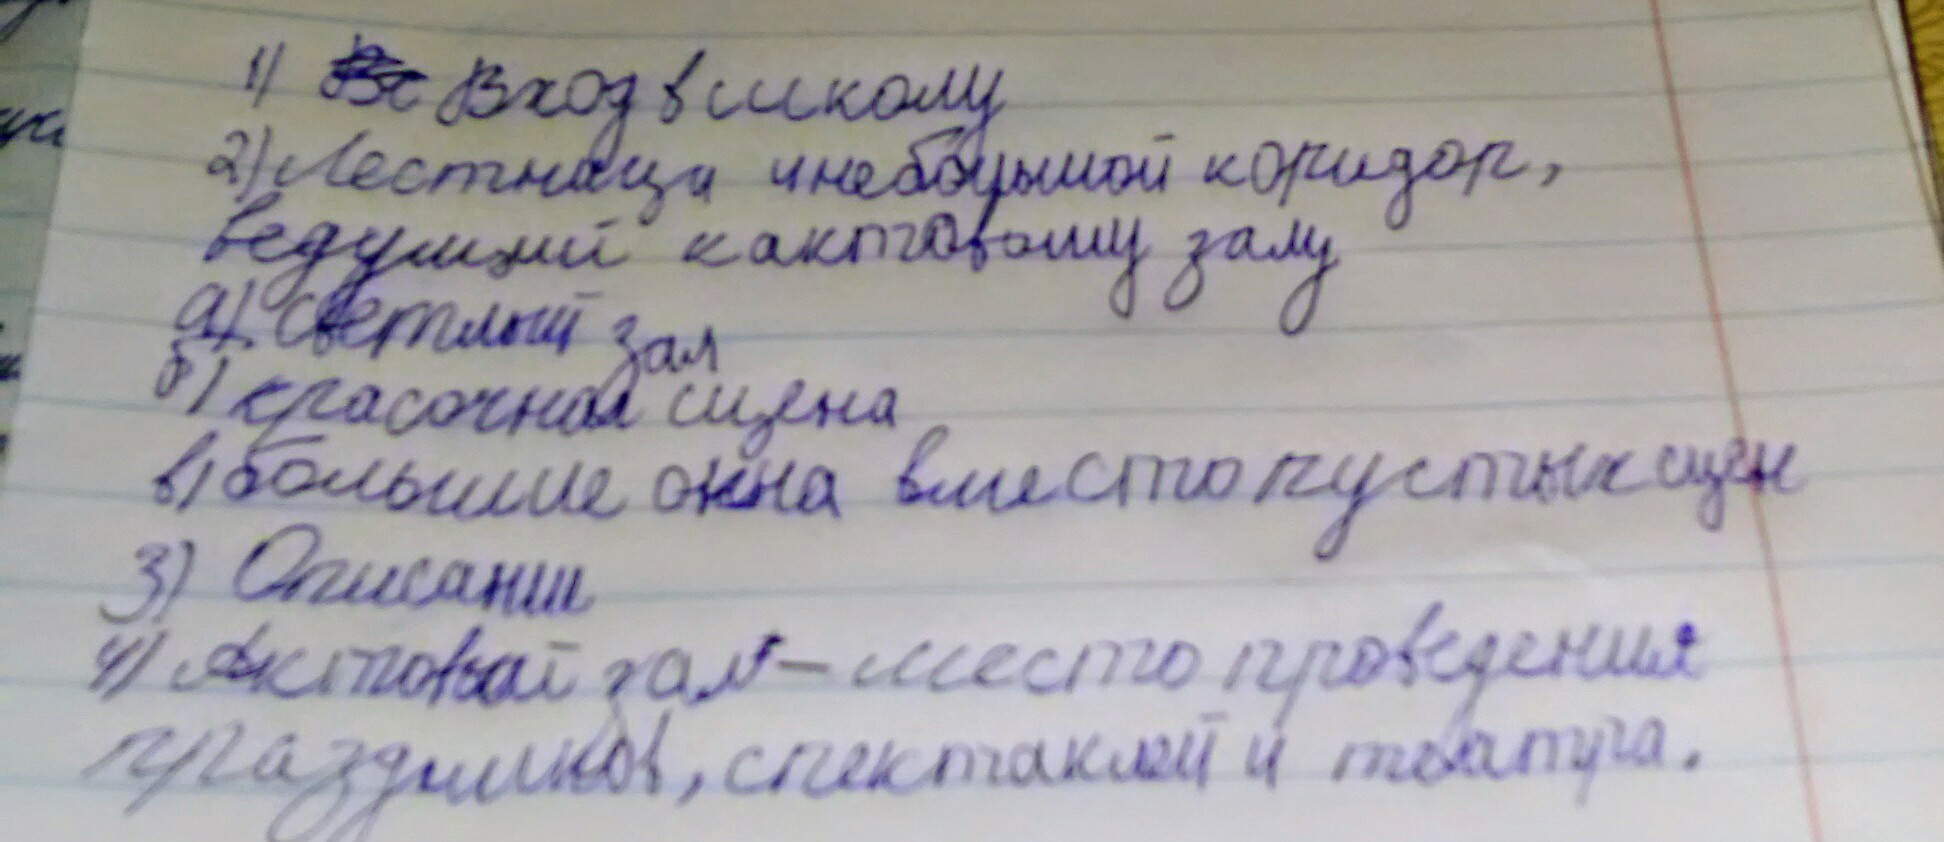 1) Вход в школу
2) Лестнаца и небольшой коридор,
ведущий к актовому залу
а) светлый зал
б) красочная сцена
в) большие окна вместо пустых сцен
3) Описании
4) Актовый зал – место проведения
праздников, спектаклей и театра.